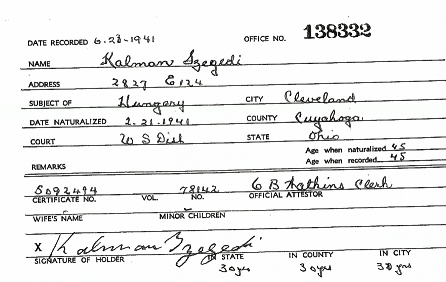 DATE RECORDED 6-23-1941 OFFICE NO. 138332
NAME Kalman Szegedi
ADDRESS 2827 E 124
SUBJECT OF Hungary CITY Cleveland
DATE NATURALIZED 2-21-1941 COUNTY Cuyahoga
COURT U S Dist STATE Ohio
Age when naturalized 45
REMARKS Age when recorded 45
5092494 78142 C B Watkins Clerk
CERTIFICATE NO. VOL. NO. OFFICIAL ATTESTOR
WIFE'S NAME MINOR CHILDREN
X Kalman Szegedi
SIGNATURE OF HOLDER IN STATE IN COUNTY IN CITY
30 yrs 30 yrs 30 yrs